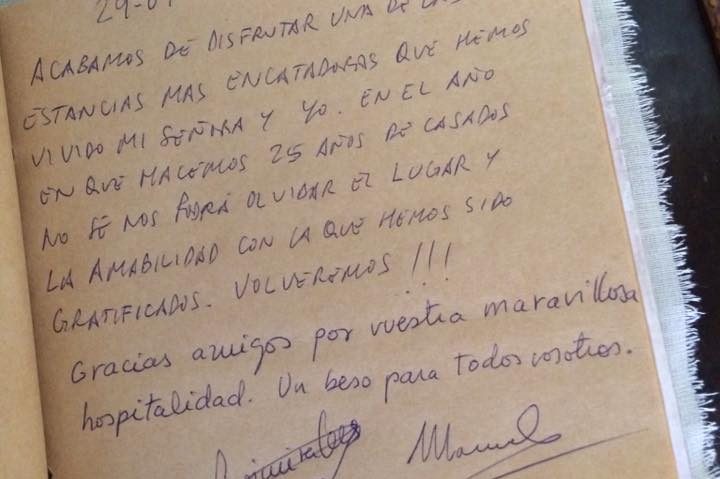 29-0
ACABAMOS DE DISFRUTAR UNA DE LAS
ESTANCIAS MAS ENCATADORAS QUE HEMOS
VIVIDO MI SEÑORA Y YO. EN EL AÑO
EN QUE HACEMOS 25 AÑOS DE CASADOS
NO SE NOS PODRÁ OLVIDAR EL LUGAR Y
LA AMABILIDAD CON LA QUE HEMOS SIDO
GRATIFICADOS. VOLVEREMOS !!!
Gracias amigos por vuestra maravillosa
hospitalidad. Un beso para todos vosotros.
Manuel